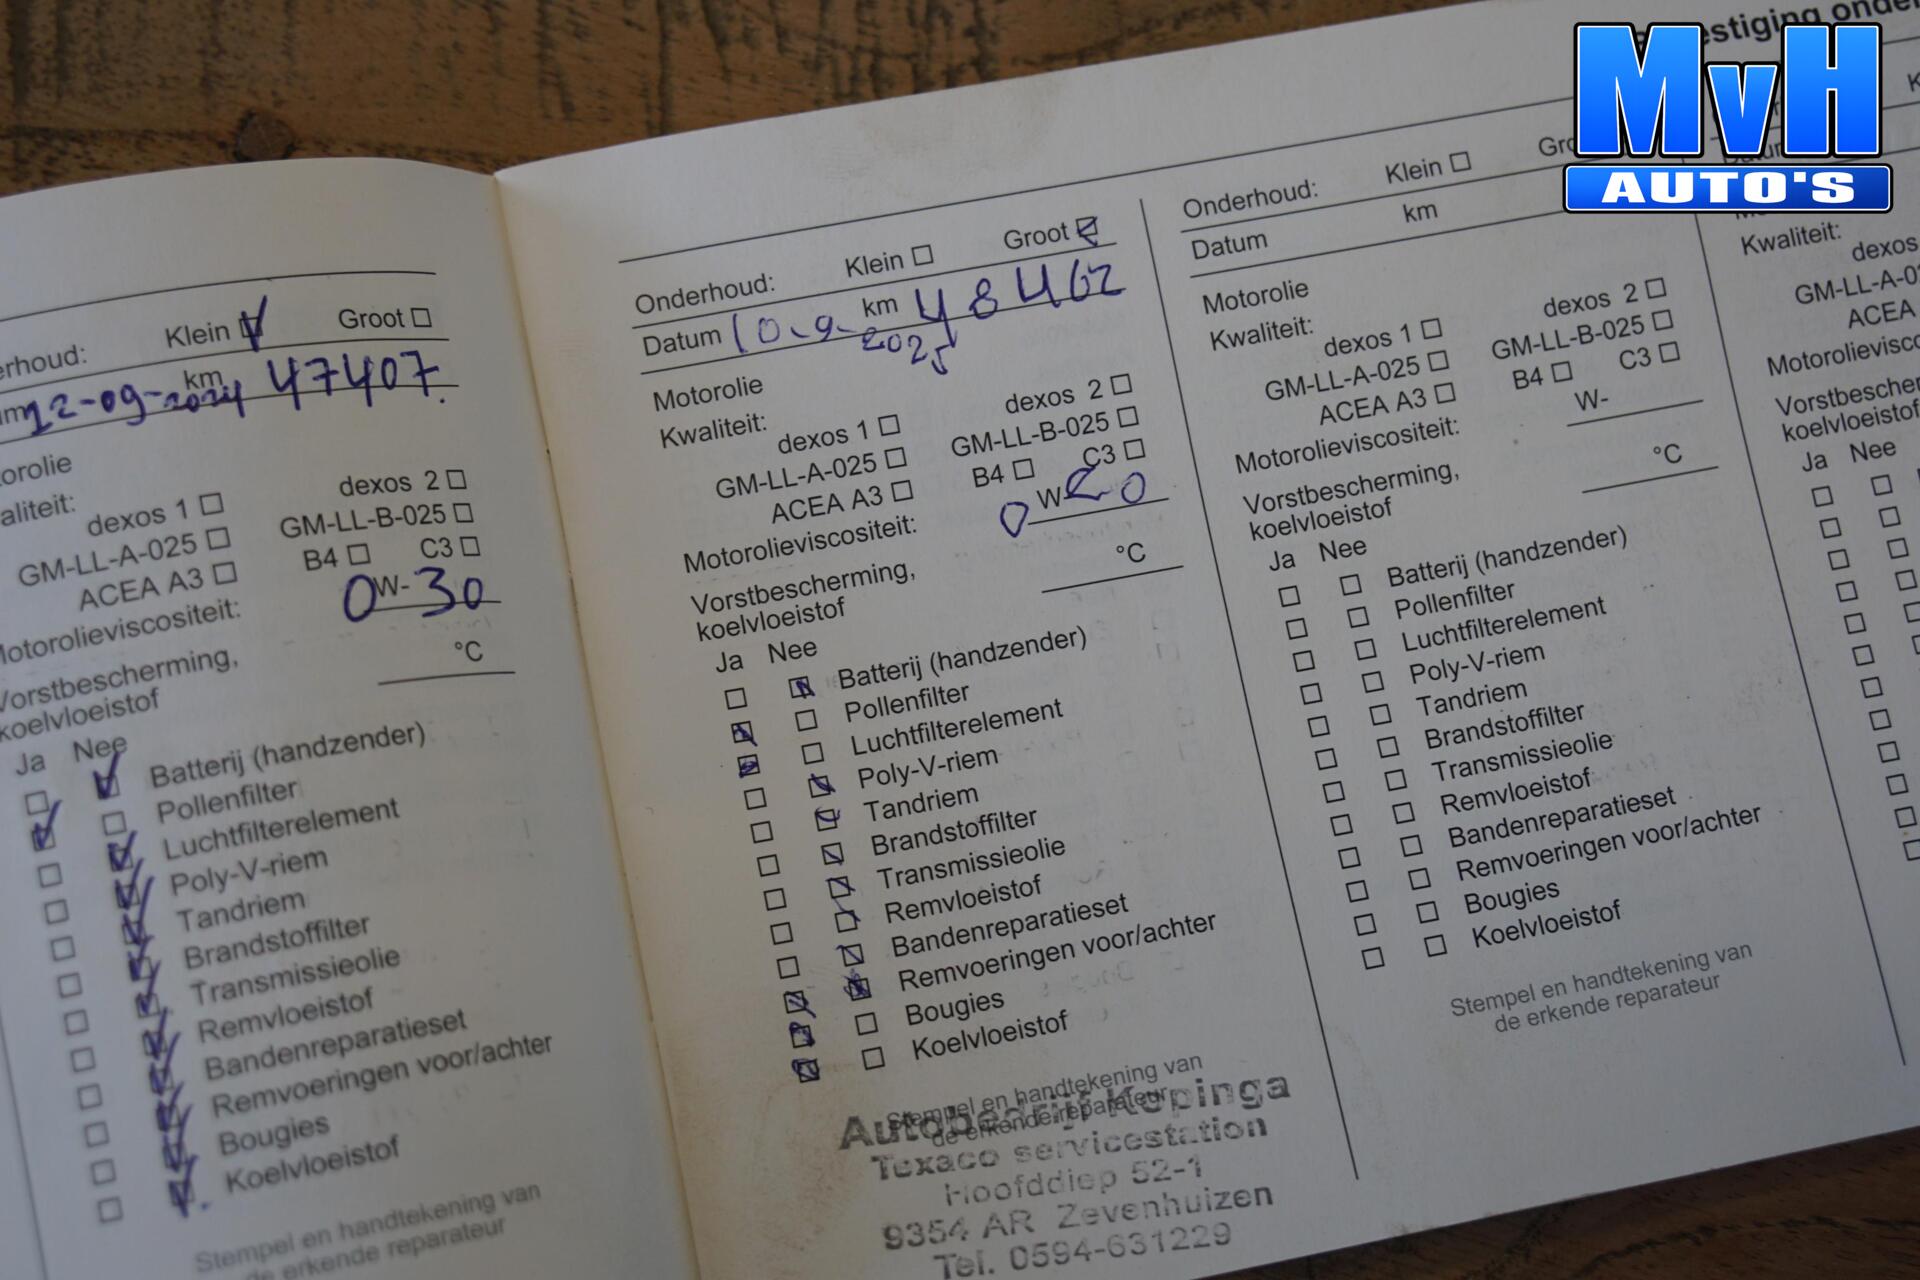 MvH
AUTO'S
Klein Groot
km
12-09-2024 47407.
dexos 1 dexos 2
GM-LL-A-025 GM-LL-B-025
ACEA A3 B4 C3
Motorolieviscositeit: 0 W- 30
Vorstbescherming,
koelvloeistof °C
Ja Nee
Batterij (handzender)
Pollenfilter
Luchtfilterelement
Poly-V-riem
Tandriem
Brandstoffilter
Transmissieolie
Remvloeistof
Bandenreparatieset
Remvoeringen voor/achter
Bougies
Koelvloeistof
Stempel en handtekening van
de erkende reparateur
Onderhoud: Klein Groot
Datum 10-9-2025 km 48462
Motorolie
Kwaliteit:
dexos 1 dexos 2
GM-LL-A-025 GM-LL-B-025
ACEA A3 B4 C3
Motorolieviscositeit: 0 W- 20
Vorstbescherming,
koelvloeistof °C
Ja Nee
Batterij (handzender)
Pollenfilter
Luchtfilterelement
Poly-V-riem
Tandriem
Brandstoffilter
Transmissieolie
Remvloeistof
Bandenreparatieset
Remvoeringen voor/achter
Bougies
Koelvloeistof
Stempel en handtekening van
de erkende reparateur
Autobedrijf Kopinga
Texaco servicestation
Hoofddiep 52-1
9354 AR Zevenhuizen
Tel. 0594-631229
Onderhoud: Klein
Datum km
Motorolie
Kwaliteit:
dexos 1 dexos 2
GM-LL-A-025 GM-LL-B-025
ACEA A3 B4 C3
Motorolieviscositeit: W-
Vorstbescherming,
koelvloeistof °C
Ja Nee
Batterij (handzender)
Pollenfilter
Luchtfilterelement
Poly-V-riem
Tandriem
Brandstoffilter
Transmissieolie
Remvloeistof
Bandenreparatieset
Remvoeringen voor/achter
Bougies
Koelvloeistof
Stempel en handtekening van
de erkende reparateur
Kwaliteit:
dexos
GM-LL-A-02
ACEA
Motorolievisco
Vorstbescherm
koelvloeistof
Ja Nee